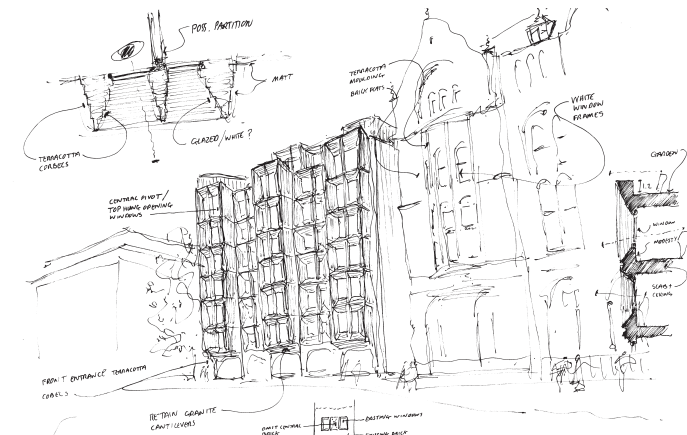 POSS. PARTITION
MATT
GLAZED/WHITE?
TERRACOTTA
CORBELS
TERRACOTTA
MOULDING
BRICK
WHITE
WINDOW
FRAMES
CENTRAL PIVOT/
TOP HUNG OPENING
WINDOWS
1.2
WINDOW
MODESTY
SLAB +
CEILING
FRONT ENTRANCE TERRACOTTA
COBELS
RETAIN GRANITE
CANTILEVERS
OMIT CENTRAL
BRICK
EXISTING WINDOWS
BRICK